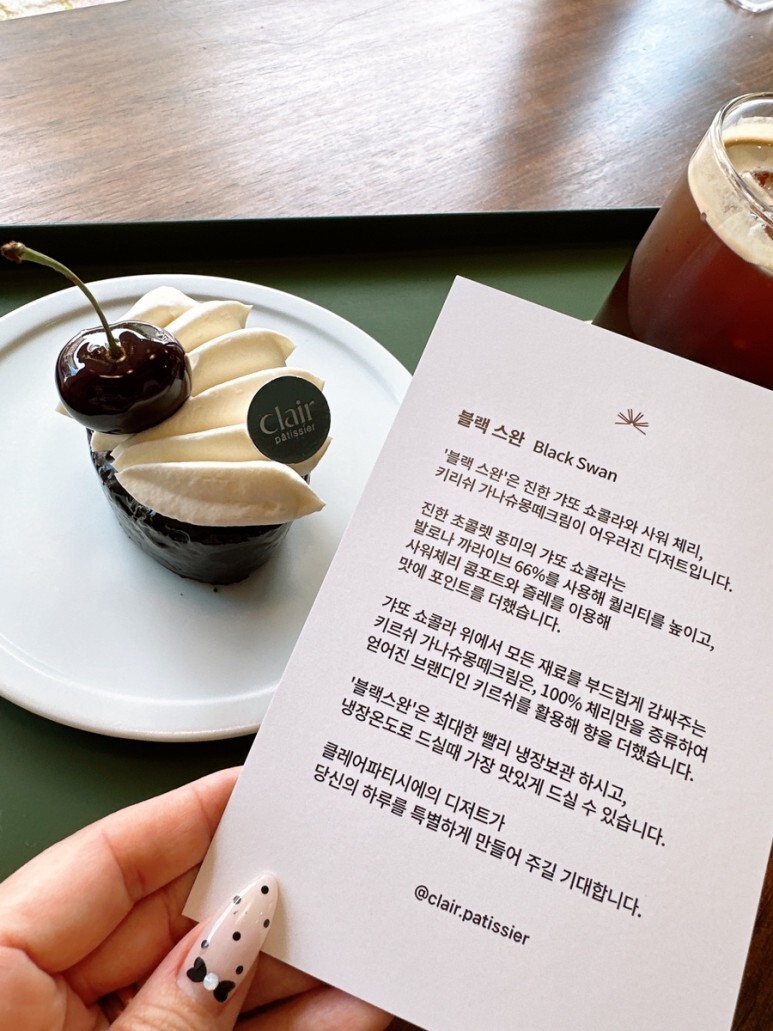 clair
pâtissier
블랙 스완 Black Swan
'블랙 스완'은 진한 가또 쇼콜라와 사워 체리,
키리쉬 가나슈몽떼크림이 어우러진 디저트입니다.
진한 초콜렛 풍미의 가또 쇼콜라는
발로나 까라이브 66%를 사용해 퀄리티를 높이고,
사워체리 콤포트와 즐레를 이용해
맛에 포인트를 더했습니다.
가또 쇼콜라 위에서 모든 재료를 부드럽게 감싸주는
키르쉬 가나슈몽떼크림은, 100% 체리만을 증류하여
얻어진 브랜디인 키르쉬를 활용해 향을 더했습니다.
'블랙스완'은 최대한 빨리 냉장보관 하시고,
냉장온도로 드실때 가장 맛있게 드실 수 있습니다.
클레어파티시에의 디저트가
당신의 하루를 특별하게 만들어 주길 기대합니다.
@clair.patissier